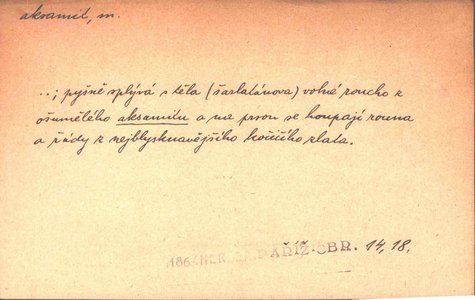 aksamit, m.
..; pyšně splývá s těla (šarlatánova) volné roucho z
ošumělého aksamitu a na prsou se houpají rouna
a řády z nejblyskavějšího kočičího zlata.
186 NER. PAŘÍŽ. OBR. 14, 18.